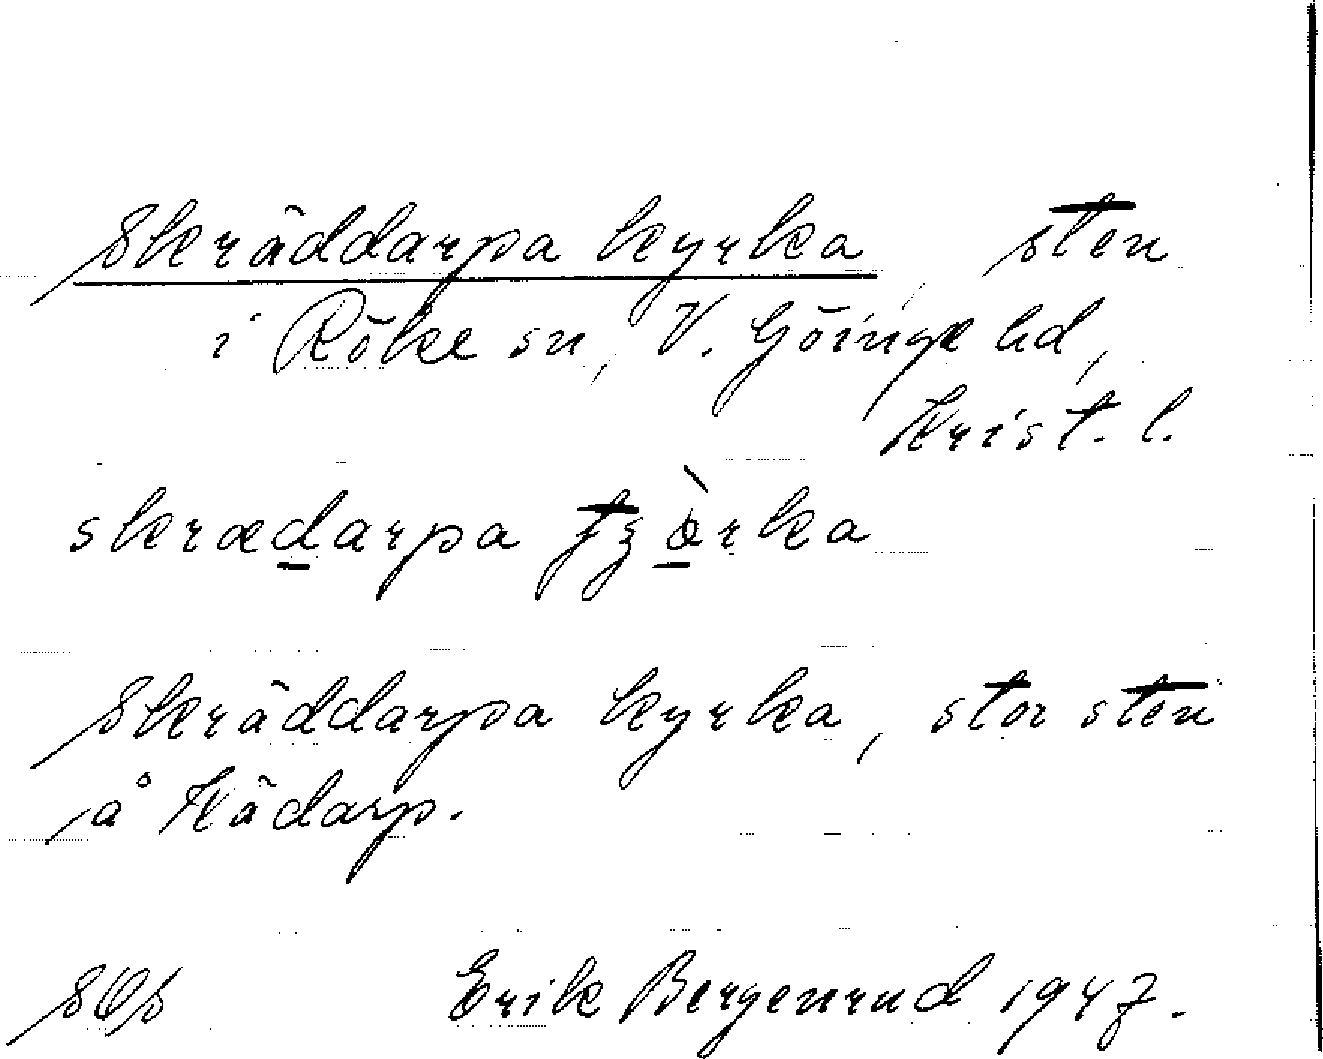 Skräddarpa kyrka, sten
i Röke sn, V. Göinge hd,
Krist. l.
skrædarpa tʒòrka
Skräddarpa kyrka, stor sten
å Kädarp.
Erik Bergenrud 1947.